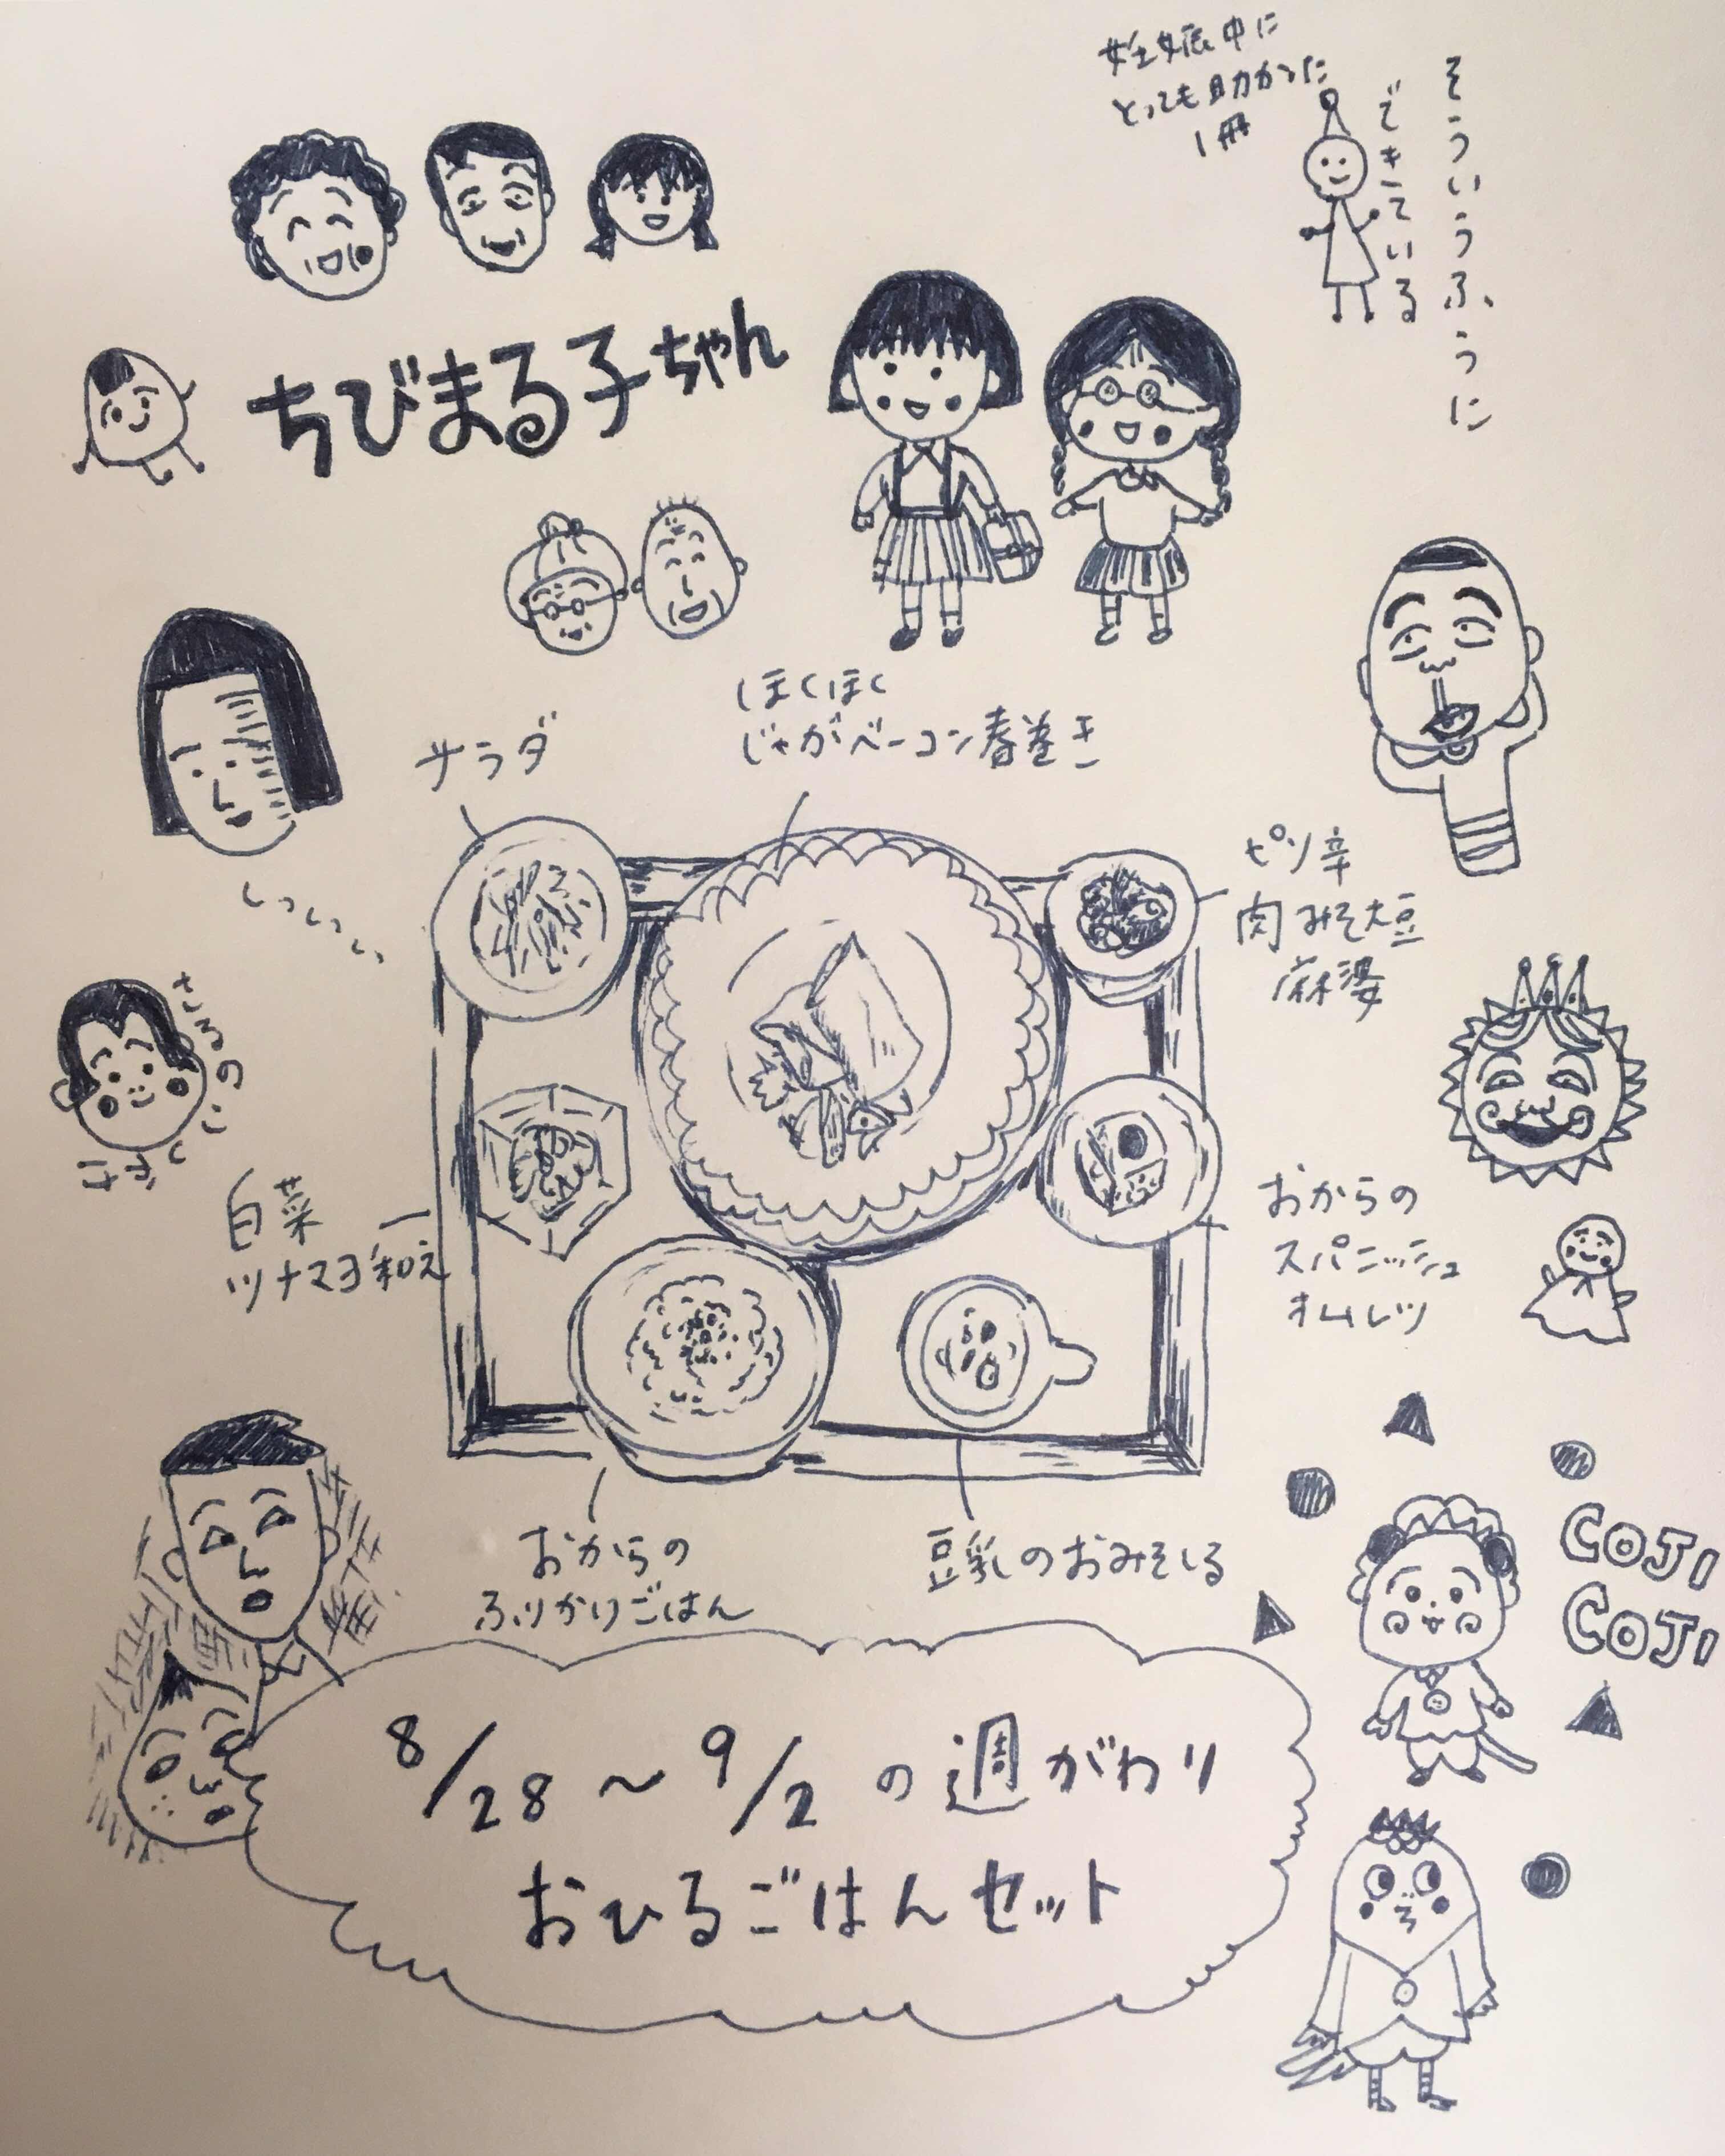 妊娠中に
とっても助かった
1冊
そういうふうに
できている
ちびまる子ちゃん
ほくほく
じゃがベーコン春巻き
サラダ
ピリ辛
肉みそ大豆
麻婆
くっくっく、、
さるの
こしかけ
白菜
ツナマヨ和え
おからの
スパニッシュ
オムレツ
おからの
ふりかけごはん
豆乳のおみそしる
COJI
COJI
8/28～9/2の週がわり
おひるごはんセット